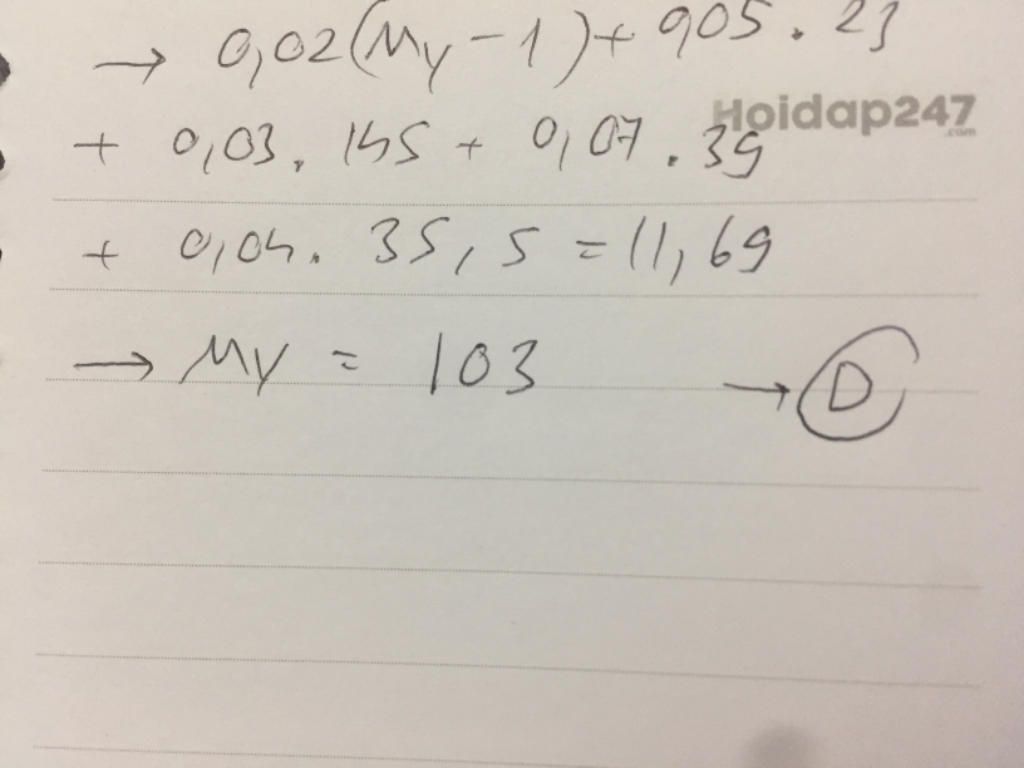 → 0,02(My - 1) + 0,05 . 23
Hoidap247
.com
+ 0,03 . 145 + 0,07 . 39
+ 0,04 . 35,5 = 11,69
→ My = 103 → D